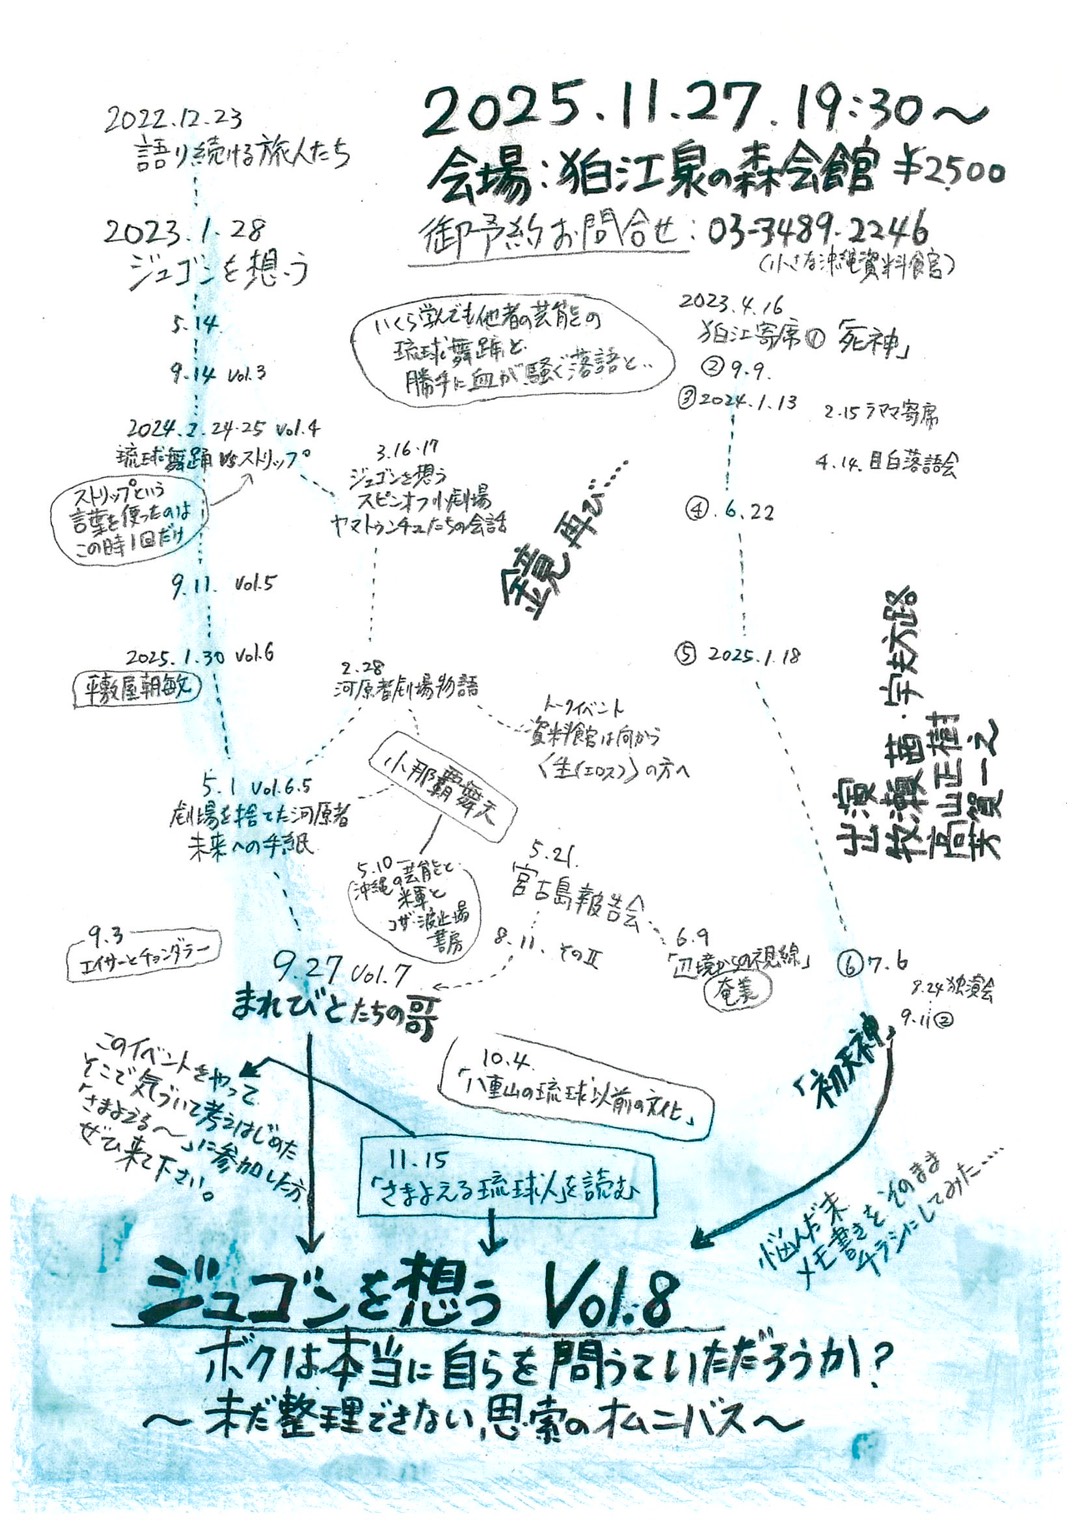 2025.11.27.19:30〜
会場:狛江泉の森会館 ¥2500
御予約お問合せ:03-3489-2246
(小さな沖縄資料館)
2022.12.23
語り続ける旅人たち
2023.1.28
ジュゴンを想う
5.14
9.14 Vol.3
2024.2.24-25 Vol.4
琉球舞踊 vs ストリップ
ストリップという
言葉を使ったのは
この時1回だけ
9.11. Vol.5
2025.1.30 Vol.6
平敷屋朝敏
いくら学んでも他者の芸能の
琉球舞踊と
勝手に血が騒ぐ落語と..
3.16-17
ジュゴンを想う
スピンオフ小劇場
ヤマトゥンチュたちの会話
鏡 再び…
2023.4.16
狛江寄席①「死神」
②9.9.
③2024.1.13
2.15 ラママ寄席
4.14. 目白落語会
④.6.22
⑤ 2025.1.18
出演
牧瀬茜・宇夫方路
高山正樹
芳賀一之
2.28
河原者劇場物語
トークイベント
資料館は向かう
〈生(エロス)〉の方へ
小那覇舞天
5.1 Vol.6.5
劇場を捨てた河原者
未来への手紙
5.10
沖縄の芸能と
米軍と
コザ・波止場
書房
5.21.
宮古島報告会
8.11. そのⅡ
6.9
「辺境からの視線」
奄美
9.3
エイサーとチョンダラー
9.27 Vol.7
まれびとたちの哥
⑥7.6
8.24 独演会
9.11②
「初天神」
このイベントをやって
そこで気づいて考えはじめた
「さまよえる〜」に参加した方
ぜひ来て下さい。
10.4.
「八重山の琉球以前の文化」
11.15
「さまよえる琉球人」を読む
悩んだ末
メモ書きをそのまま
チラシにしてみた….
ジュゴンを想う Vol.8
ボクは本当に自らを問うていただろうか?
〜未だ整理できない思索のオムニバス〜